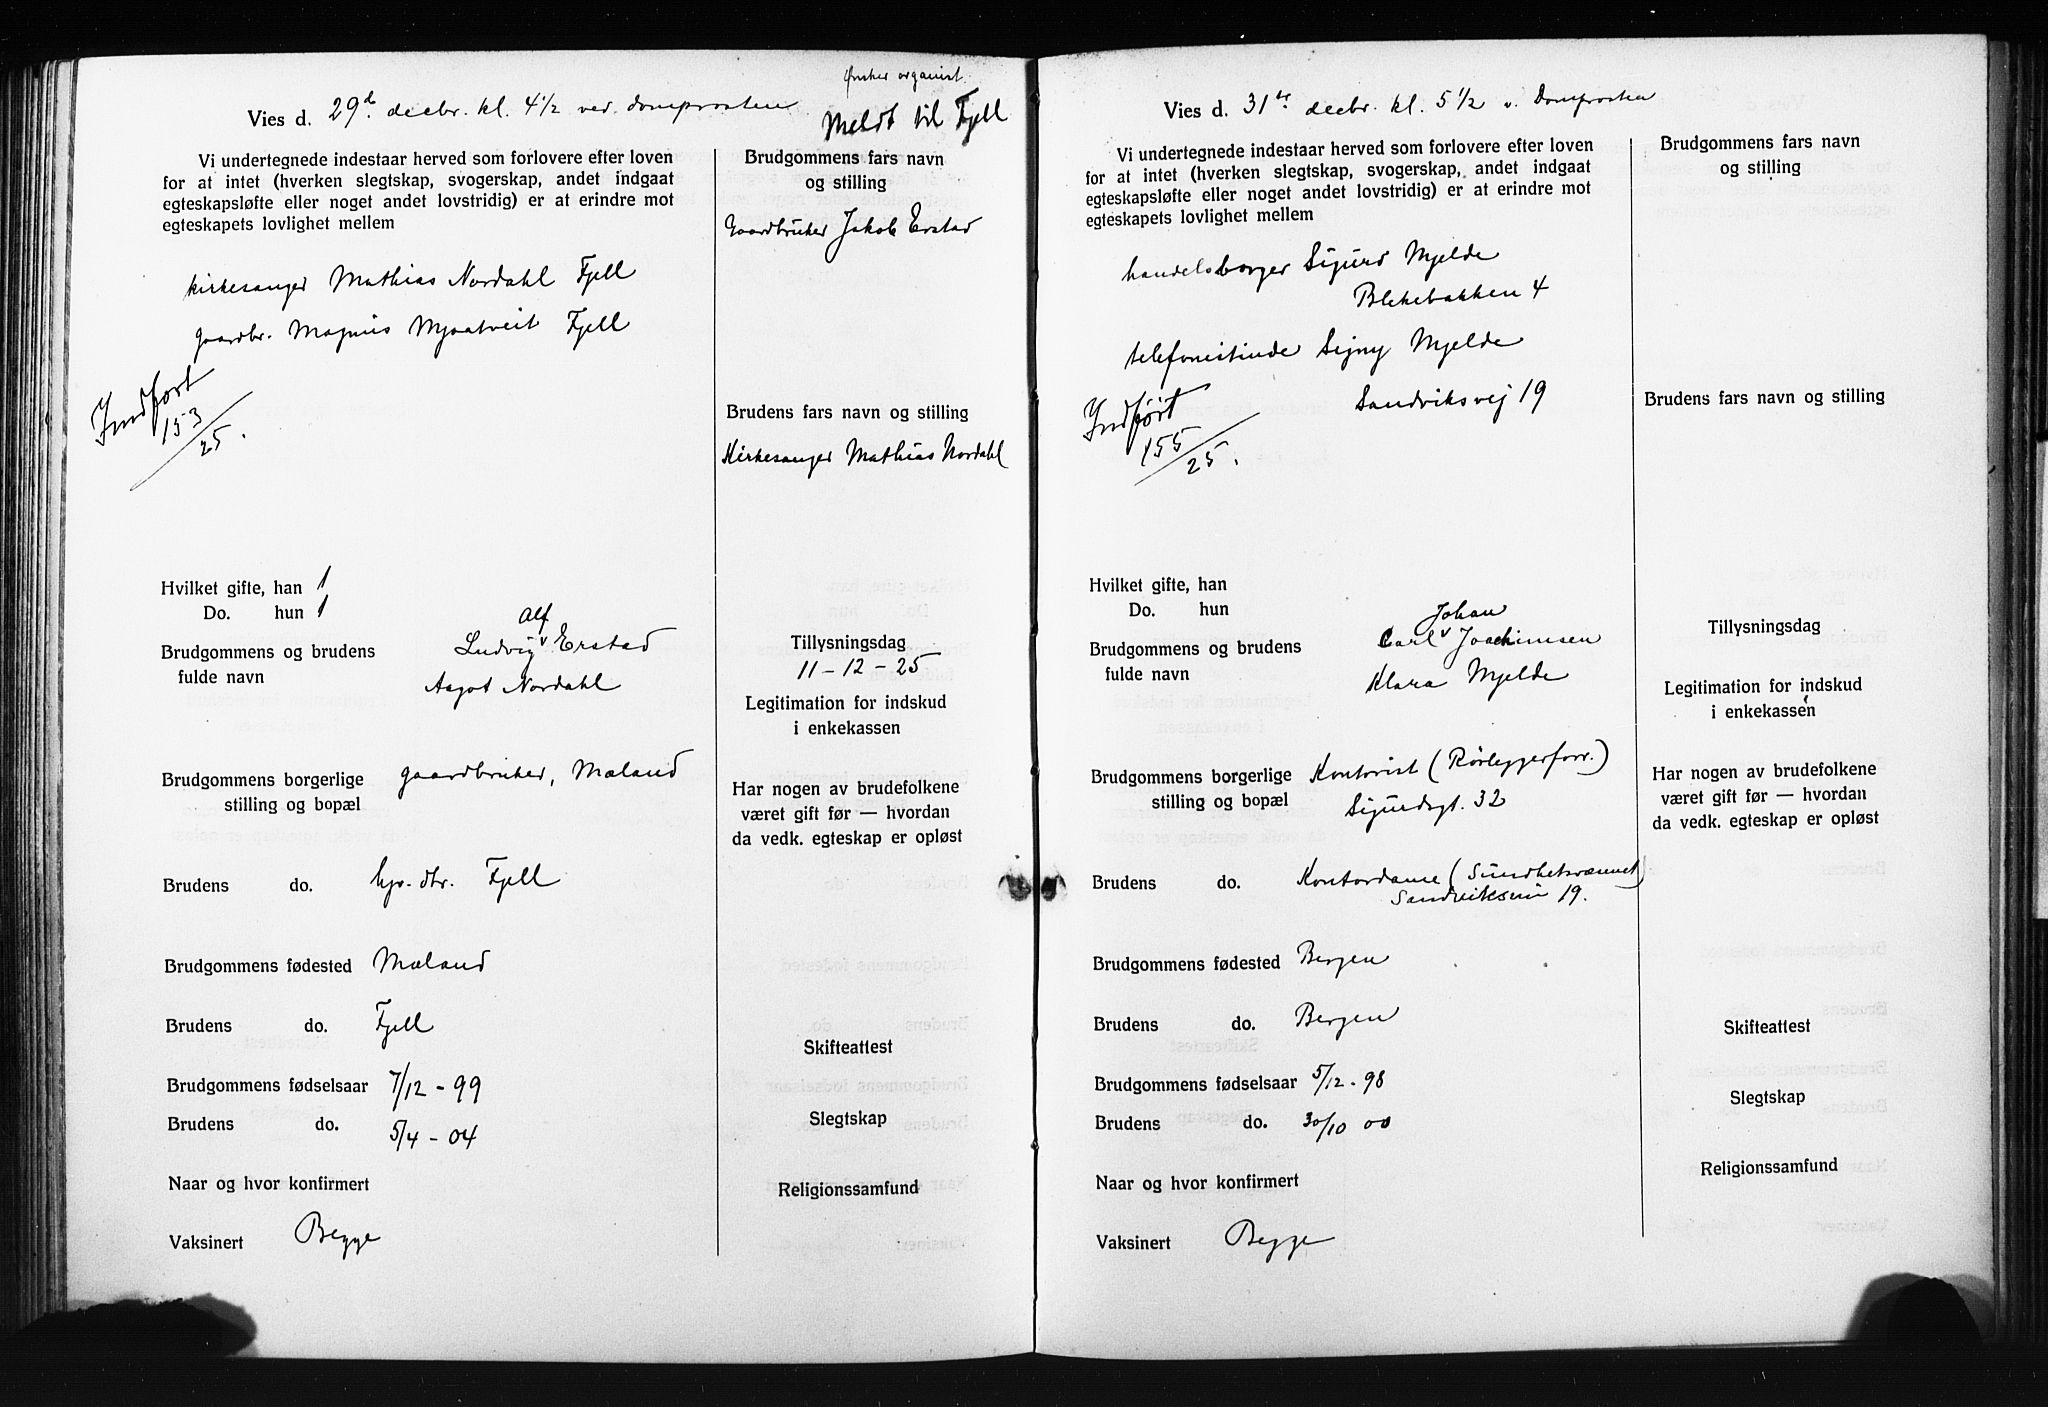 Ønsker organist.
Vies d. 29d. decbr. kl. 4½ ved domprosten
Meldt til Fjell
Vi undertegnede indestaar herved som forlovere efter loven
for at intet (hverken slegtskap, svogerskap, andet indgaat
egteskapsløfte eller noget andet lovstridig) er at erindre mot
egteskapets lovlighet mellem
Brudgommens fars navn
og stilling
Gaardbruker Jakob Erstad
kirkesanger Mathias Nordahl Fjell
gaardbr. Magnus Mjaatveit Fjell
Indført
153/25.
Brudens fars navn og stilling
Kirkesanger Mathias Nordahl
Hvilket gifte, han 1
Do. hun 1
Alf
Brudgommens og brudens Ludvig v Erstad
fulde navn Aagot Nordahl
Tillysningsdag
11-12-25
Legitimation for indskud
i enkekassen
Brudgommens borgerlige gaardbruker, Mæland
stilling og bopæl
Har nogen av brudefolkene
været gift før — hvordan
da vedk. egteskap er opløst
Brudens do. hjv. dtr. Fjell
Brudgommens fødested Mæland
Brudens do. Fjell
Skifteattest
Brudgommens fødselsaar 7/12-99
Brudens do. 5/4-04
Slegtskap
Naar og hvor konfirmert
Religionssamfund
Vaksinert Begge
Vies d. 31te. decbr. kl. 5½ v. Domprosten
Vi undertegnede indestaar herved som forlovere efter loven
for at intet (hverken slegtskap, svogerskap, andet indgaat
egteskapsløfte eller noget andet lovstridig) er at erindre mot
egteskapets lovlighet mellem
Brudgommens fars navn
og stilling
handelsborger Sigurd Mjelde
Blekebakken 4
telefonistinde Signy Mjelde
Sandviksvej 19
Indført
155/25.
Brudens fars navn og stilling
Hvilket gifte, han
Do. hun
Johan
Brudgommens og brudens Carl v Joachimsen
fulde navn Klara Mjelde
Tillysningsdag
Legitimation for indskud
i enkekassen
Brudgommens borgerlige Kontorist (Rørleggerforr.)
stilling og bopæl Sigurdsgt. 32
Har nogen av brudefolkene
været gift før — hvordan
da vedk. egteskap er opløst
Brudens do. Kontordame (Sundhetsvæsenet)
19.
Brudgommens fødested Bergen
Brudens do. Bergen
Skifteattest
Brudgommens fødselsaar 5/12-98
Brudens do. 30/10 00
Slegtskap
Naar og hvor konfirmert
Religionssamfund
Vaksinert Begge